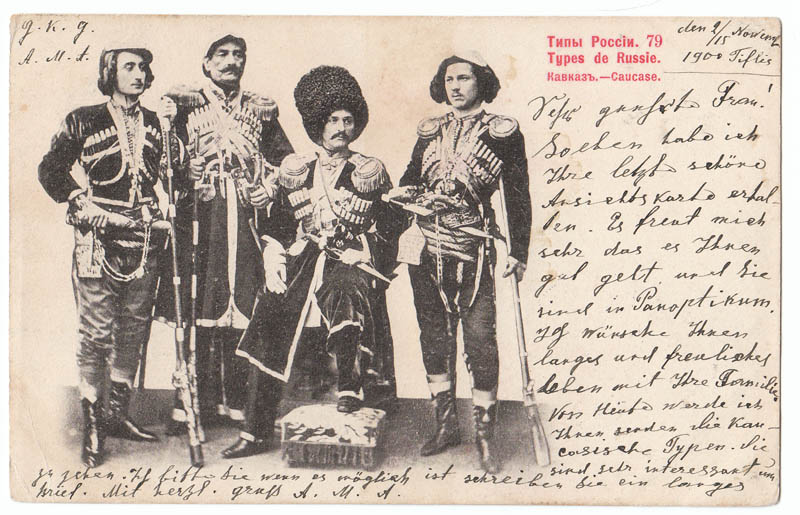 g. k. g.
A. M. A.
Типы Россіи. 79
Types de Russie.
Кавказъ.—Caucase.
den 2/15 Novemb
1900 Tiflis
Sehr geehrt Frau!
Soeben habe ich
Ihre letzt schöne
Ansichtskarte erhal-
ten. Es freut mich
sehr das es Ihnen
gut geht und Sie
sind in Panoptikum.
Ich wünsche Ihnen
langes und freuliches
leben mit Ihre Familie.
Von Heute werde ich
Ihnen senden die Kau-
casische Typen. die
sind sehr interessant um
zu sehen. Ich bitte Sie wenn es möglich ist schreiben Sie ein langes
brief. Mit herzl. gruss A. M. A.